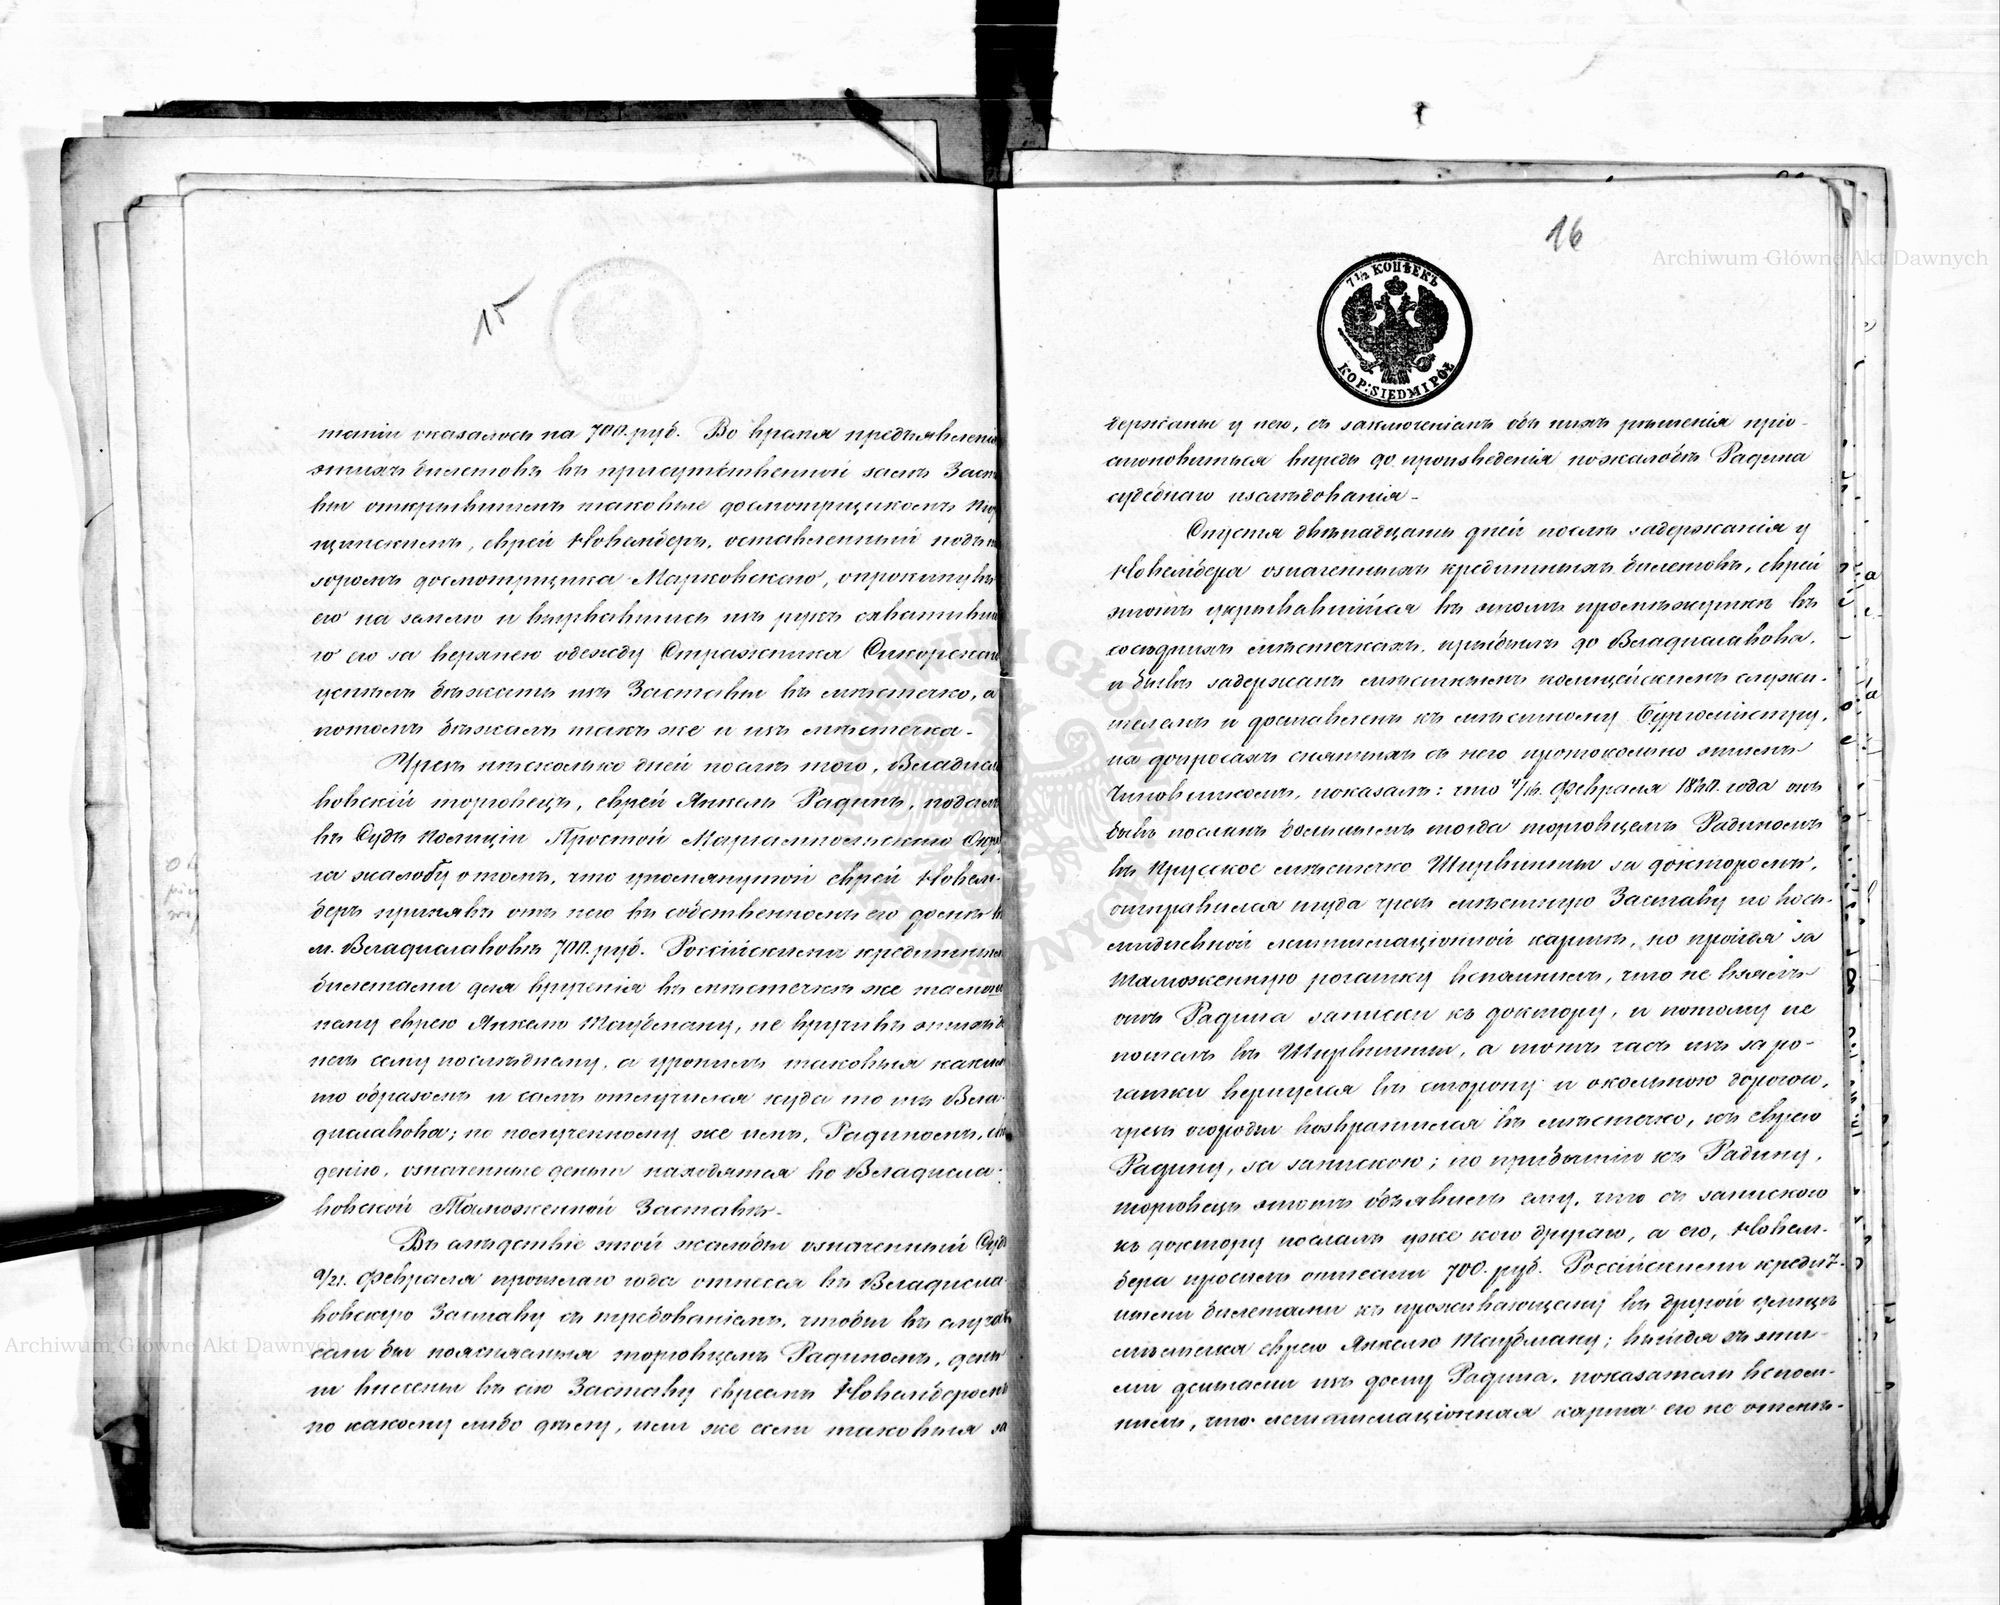 15
таніи оказалось на 700. руб. Во время предъявленія
этихъ билетовъ въ присутственной залѣ Заста
вы открывшимъ таковые досмотрщикомъ
щинскимъ, еврей Новембер, оставленный подъ
зоромъ досмотрщика Марковскаго, опрокинувъ
его на землю и вырвавшись изъ рукъ схватив
го его за верхнею одежду Стражника Сикорскаго
успѣлъ бѣжать изъ Заставы въ мѣстечко, а
потомъ бѣжалъ такъ же и изъ мѣстечка.
Чрезъ нѣсколько дней послѣ того, Владисла
вовскій торговецъ, еврей Янкель Радинъ, подалъ
въ Судъ Полиціи Простой Маріампольскаго Окру
га жалобу о томъ, что упомянутой еврей Новем-
беръ принявъ отъ него въ собственномъ его домѣ въ
м. Владиславовѣ 700. руб. Россійскими кредитными
билетами для врученія въ мѣстечкѣ же
нему еврею Янкелю Таубману, не вручивъ этихъ де
негъ сему послѣднему, а уронилъ таковыя каким
то образомъ и самъ отлучился куда то изъ Вла-
диславова; по полученному же имъ, Радиномъ, све
денію, означенные деньги находятся во Владисла-
вовской Таможенной Заставѣ.
Въ слѣдствіе этой жалобы означенный Судъ
9/21. Февраля прошлаго года отнесся въ Владисла
вовскую Заставу съ требованіемъ, чтобы въ случаѣ
если бы поясняемыя торговцемъ Радиномъ, день
ги внесены въ сію Заставу евреемъ Новемберомъ
по какому либо дѣлу, или же если таковыя за
16
7 1/2 КОПѢЕКЪ
KOP: SIEDM I PÓŁ
держаны у него, съ заключеніемъ объ нихъ рѣшенія прі
становиться впредь до произведенія по жалобѣ Радина
судебнаго изслѣдованія.
Спустя двѣнадцать дней послѣ задержанія у
Новембера означенныхъ кредитныхъ билетовъ, еврей
этотъ укрывавшійся въ этомъ промежуткѣ въ
сосѣднихъ мѣстечкахъ, прибылъ до Владиславова,
и бывъ задержанъ мѣстнымъ полицейскимъ служи-
телемъ и доставленъ къ мѣстному Бургомистру,
на допросахъ снятыхъ съ него протокольно этимъ
Чиновникомъ, показалъ: что 4/16. Февраля 1860. года онъ
бывъ посланъ больнымъ тогда торговцемъ Радиномъ
въ Прусское мѣстечко Ширвинты за докторомъ,
отправился туда чрезъ мѣстную Заставу по вось-
мидневной легитимаціонной картѣ, но пройдя за
Таможенную рогатку вспомнилъ, что не взялъ
отъ Радина записки къ доктору, и потому не
пошелъ въ Ширвинты, а тотъ часъ изъ за ро-
гатки вернулся въ сторону и окольною дорогою,
чрезъ огороды возвратился въ мѣстечко, къ еврею
Радину, за запискою; по прибытіи къ Радину,
торговецъ этотъ объявилъ ему, что съ запискою
къ доктору послалъ уже кого другаго, а его, Новем-
бера просилъ отнести 700. руб. Россійскими кредит-
ными билетами къ проживающему въ другой улицѣ
мѣстечка еврею Янкелю Таубману; выйдя съ эти-
ми деньгами изъ дому Радина, показатель вспом-
нилъ, что легитимаціонная карта его не отмѣ-
Archiwum Główne Akt Dawnych
Archiwum Główne Akt Dawnych